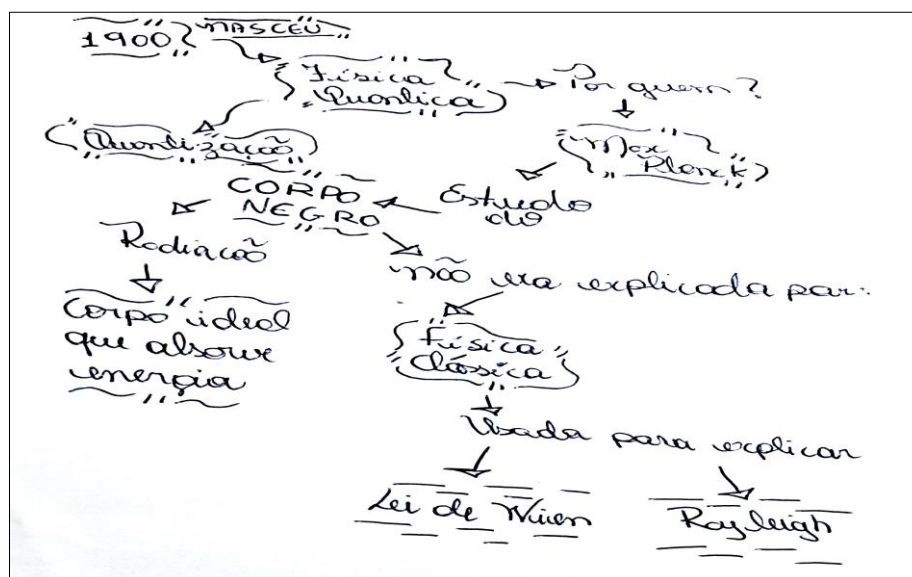 1900 NASCEU
Física
Quantica
Por quem?
Quantização
Max
Planck
CORPO
NEGRO
Estudo
do
Radiação
não era explicada por:
Corpo ideal
que absorve
energia
Física
Clássica
Usada para explicar
Lei de Wien
Rayleigh